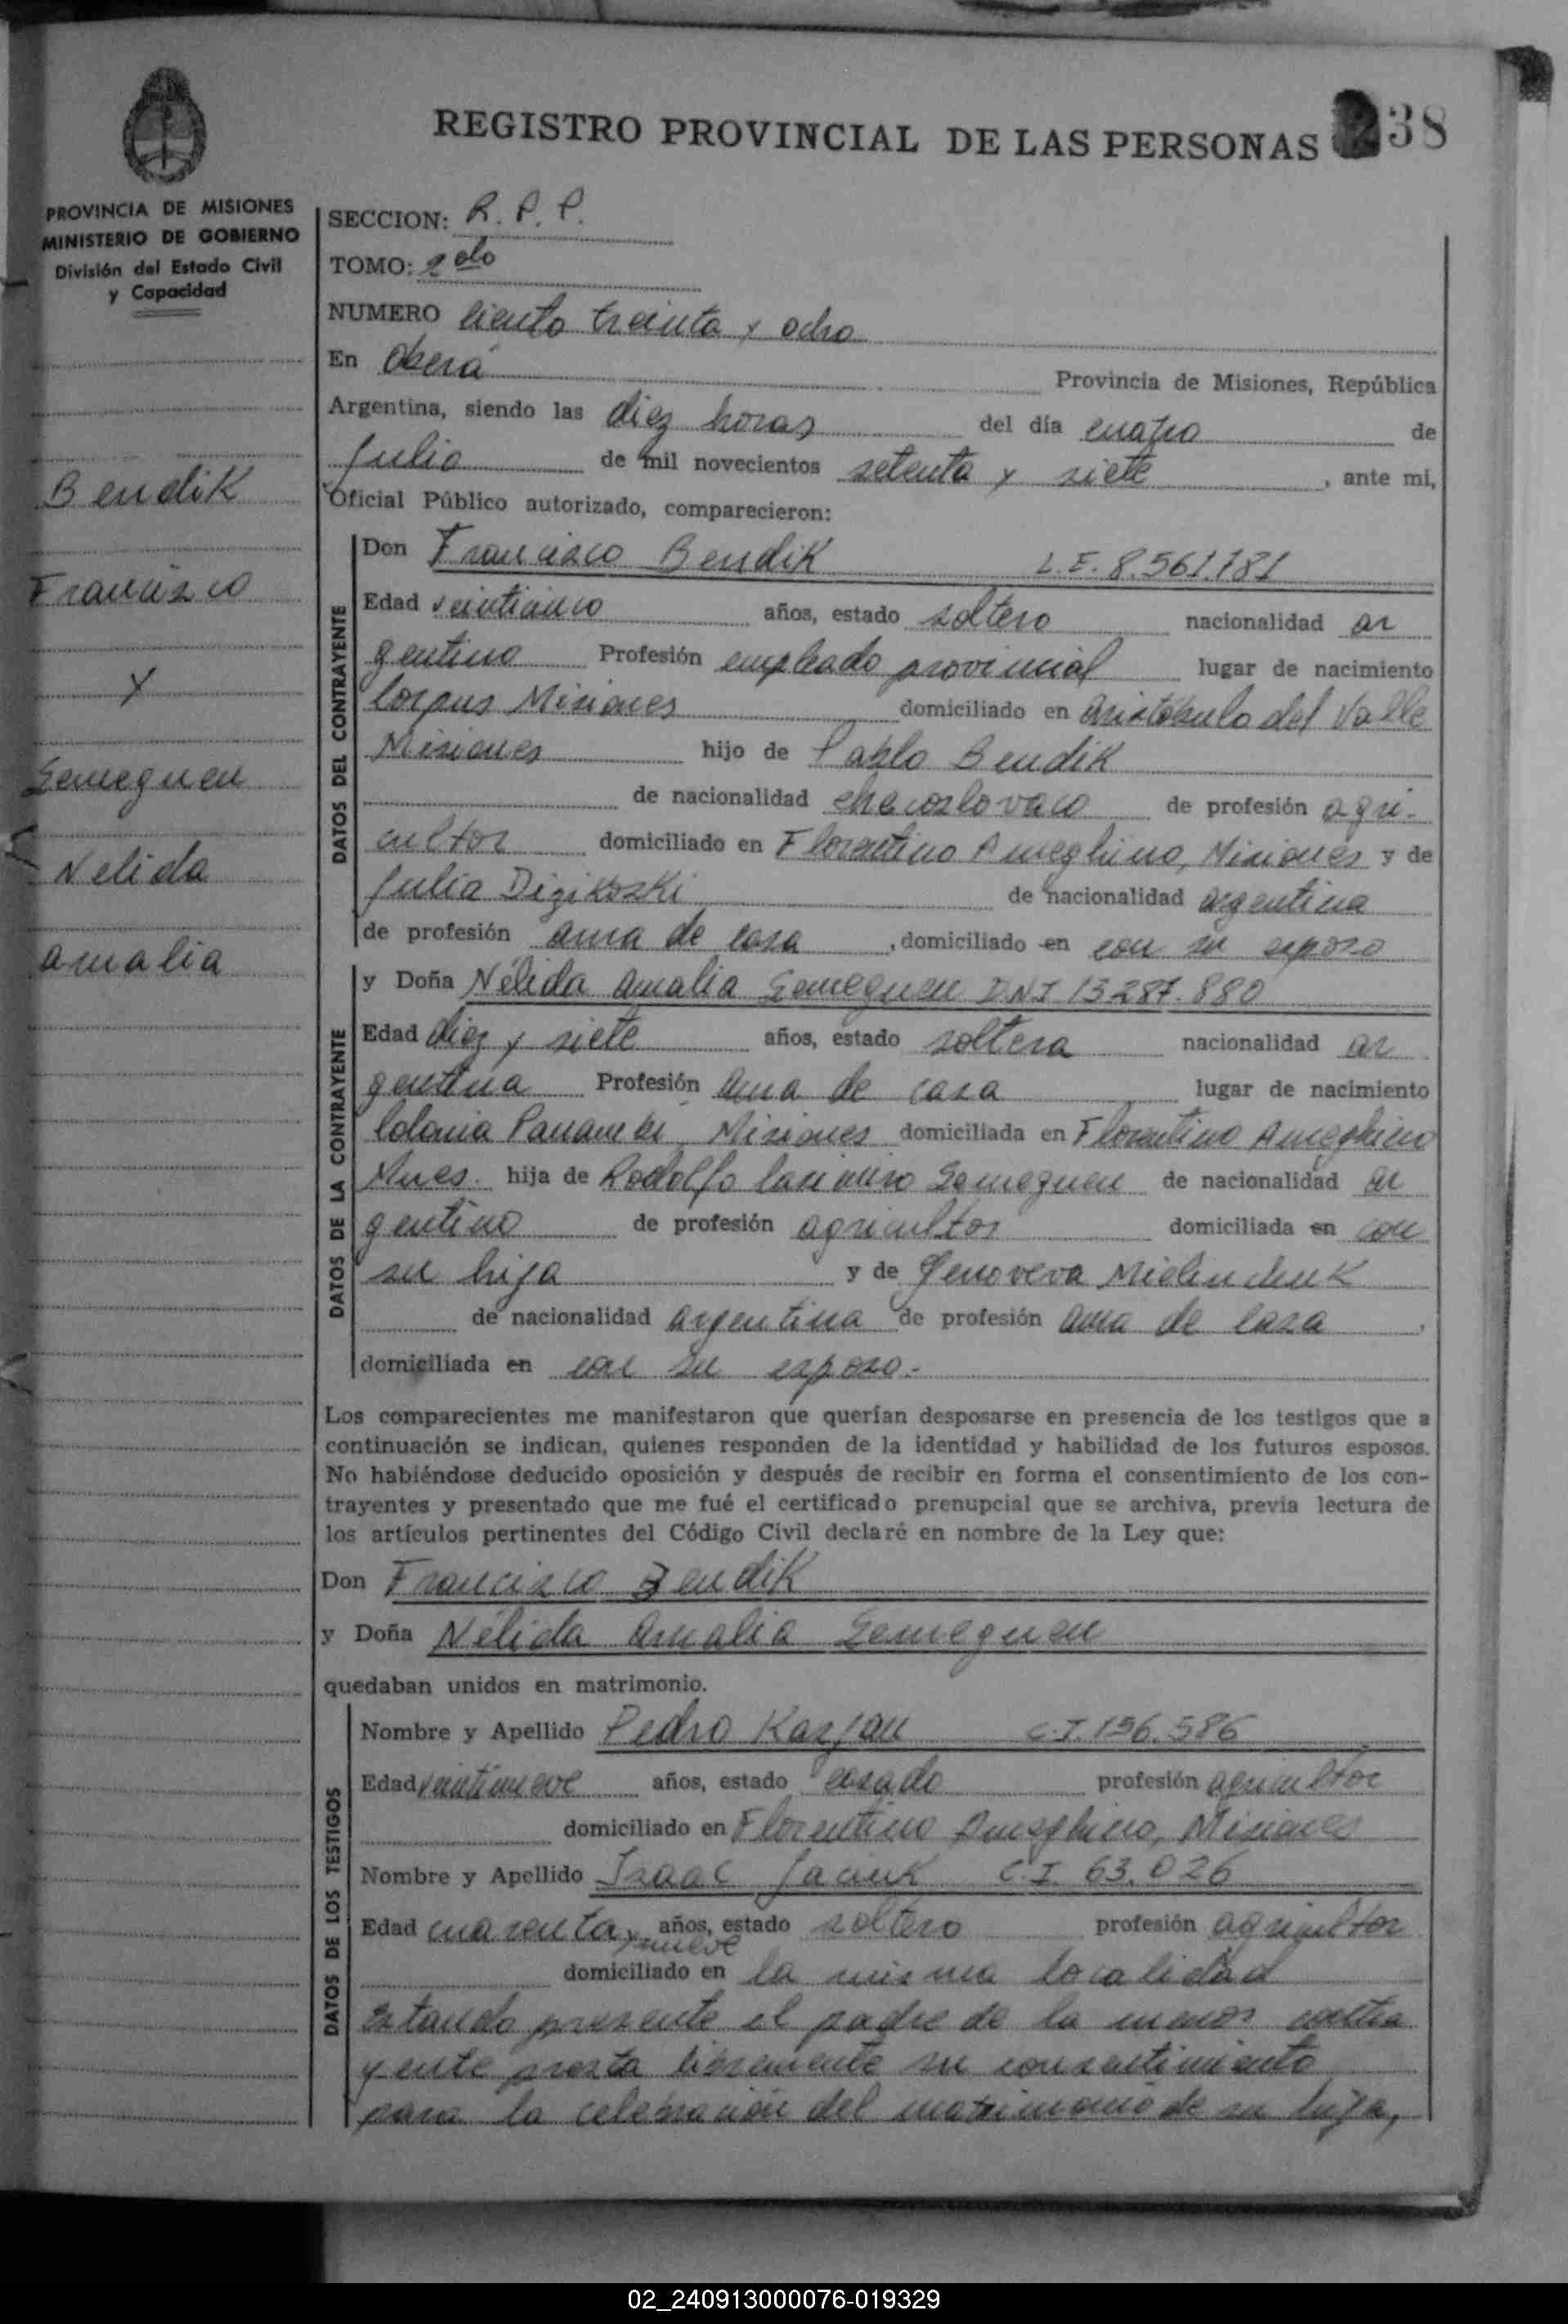 REGISTRO PROVINCIAL DE LAS PERSONAS 238
PROVINCIA DE MISIONES
MINISTERIO DE GOBIERNO
División del Estado Civil
y Capacidad
Bendik
Francisco
y
Semeguen
Nelida
Amalia
SECCION: R. P. P.
TOMO: 2do
NUMERO Ciento treinta y ocho
En Oberá Provincia de Misiones, República
Argentina, siendo las diez horas del día cuatro de
Julio de mil novecientos setenta y siete, ante mi,
Oficial Público autorizado, comparecieron:
DATOS DEL CONTRAYENTE
Don Francisco Bendik L.E. 8.561.781
Edad veinticinco años, estado soltero nacionalidad ar
gentino Profesión empleado provincial lugar de nacimiento
Corpus Misiones domiciliado en Aristóbulo del Valle
Misiones hijo de Pablo Bendik
de nacionalidad checoslovaco de profesión agri-
cultor domiciliado en Florentino Ameghino, Misiones y de
Julia Dizikoski de nacionalidad argentina
de profesión ama de casa, domiciliado en con su esposo
DATOS DE LA CONTRAYENTE
y Doña Nélida Amalia Semeguen DNI 13287.880
Edad diez y siete años, estado soltera nacionalidad ar
gentina Profesión ama de casa lugar de nacimiento
Colonia Panambí, Misiones domiciliada en Florentino Ameghino
Mnes. hija de Rodolfo Casimiro Semeguen de nacionalidad ar
gentino de profesión agricultor domiciliada en con
su hija y de Genoveva Mielinchuk
de nacionalidad argentina de profesión ama de casa,
domiciliada en con su esposo.-
Los comparecientes me manifestaron que querían desposarse en presencia de los testigos que a
continuación se indican, quienes responden de la identidad y habilidad de los futuros esposos.
No habiéndose deducido oposición y después de recibir en forma el consentimiento de los con-
trayentes y presentado que me fué el certificado prenupcial que se archiva, previa lectura de
los artículos pertinentes del Código Civil declaré en nombre de la Ley que:
Don Francisco Bendik
y Doña Nélida Amalia Semeguen
quedaban unidos en matrimonio.
DATOS DE LOS TESTIGOS
Nombre y Apellido Pedro Kasjan C.I. 156.586
Edad veintinueve años, estado casado profesión agricultor
domiciliado en Florentino Ameghino, Misiones
Nombre y Apellido Isaac Jaciuk C.I. 63.026
Edad cuarenta y nueve años, estado soltero profesión agricultor
domiciliado en la misma localidad
Estando presente el padre de la menor contra
yente presta libremente su consentimiento
para la celebración del matrimonio de su hija,
02_240913000076-019329